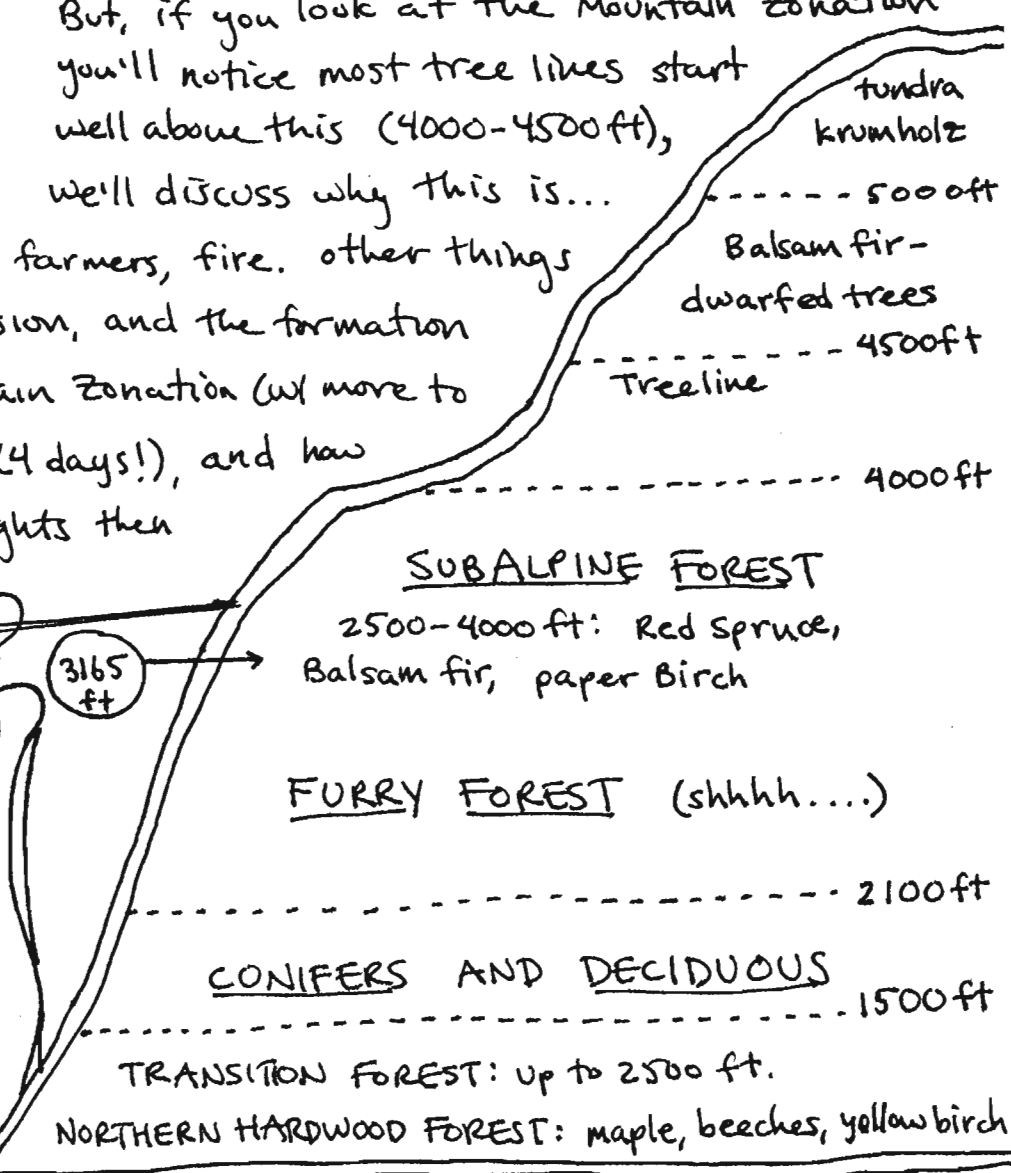 But, if you look at the Mountain Zonation
you'll notice most tree lines start
well above this (4000-4500ft),
we'll discuss why this is...
farmers, fire. other things
sion, and the formation
ain Zonation (w/ more to
(4 days!), and how
ghts then
tundra
krumholz
5000ft
Balsam fir-
dwarfed trees
4500ft
Treeline
4000ft
SUBALPINE FOREST
2500-4000ft: Red Spruce,
Balsam fir, paper Birch
3165
ft
FURRY FOREST (shhhh....)
2100ft
CONIFERS AND DECIDUOUS
1500ft
TRANSITION FOREST: up to 2500 ft.
NORTHERN HARDWOOD FOREST: maple, beeches, yellow birch